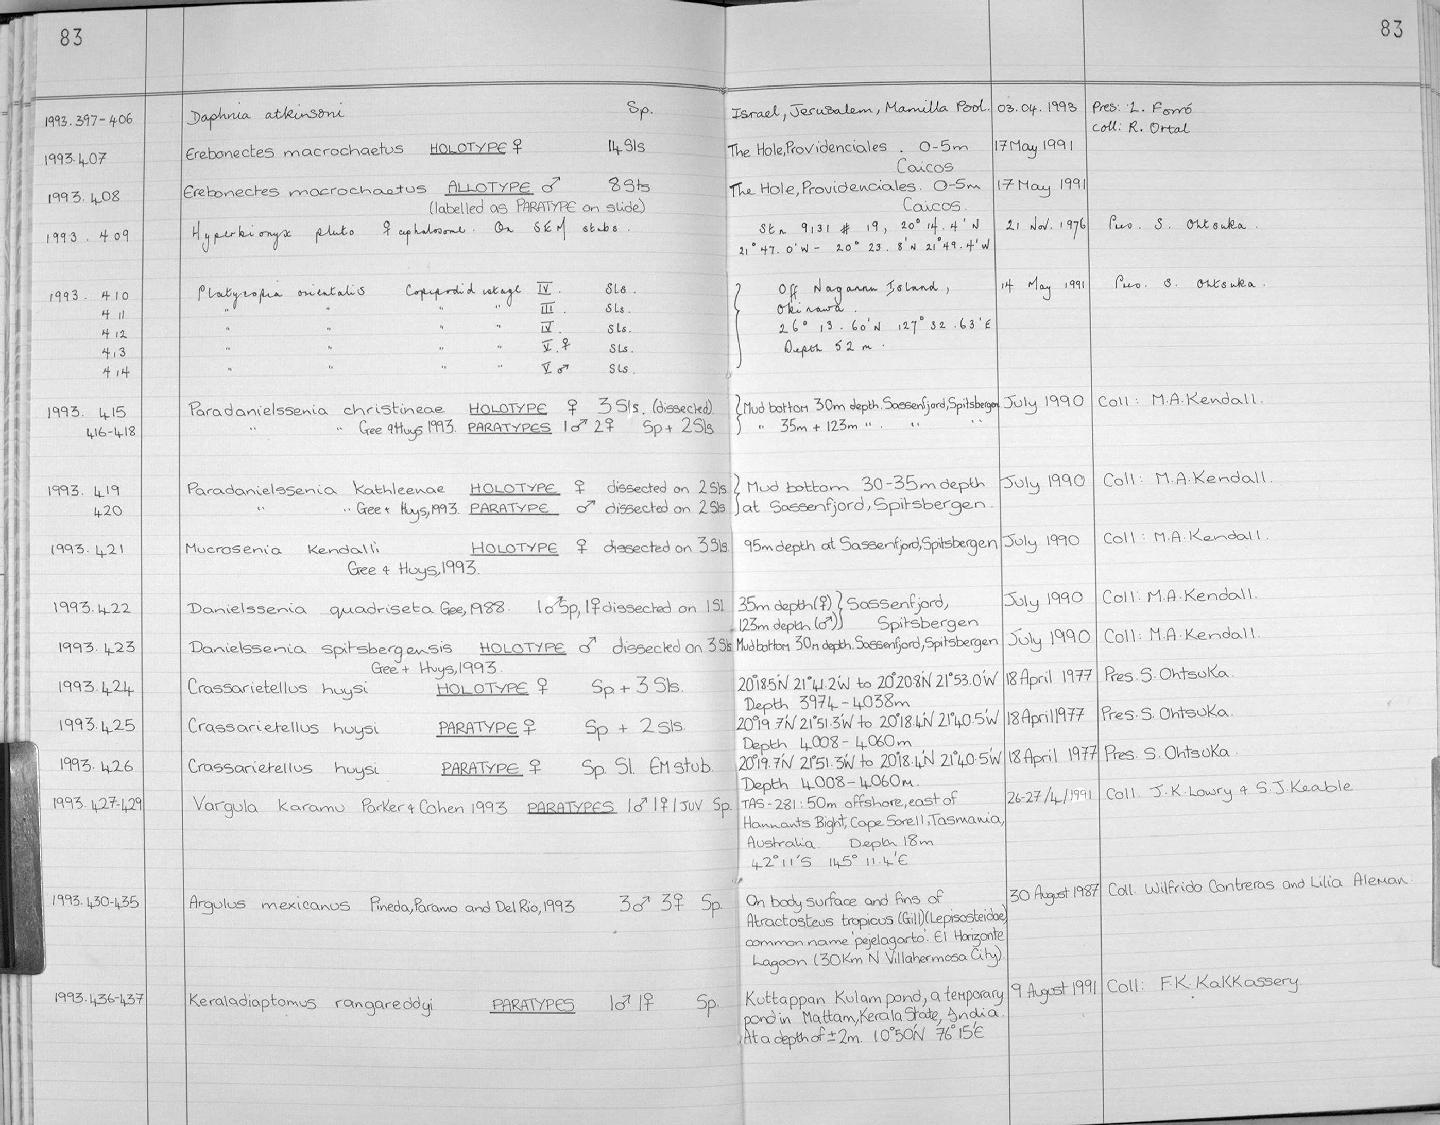 83
83
1993.397-406 Daphnia atkinsoni Sp. Israel, Jerusalem, Mamilla Pool. 03.04.1993 Pres: L. Forró
Coll: R. Ortal
1993.407 Erebonectes macrochaetus HOLOTYPE ♀ 14 Sls The Hole, Providenciales . 0-5m 17 May 1991
Caicos
1993.408 Erebonectes macrochaetus ALLOTYPE ♂ 8 Sls The Hole, Providenciales. 0-5m 17 May 1991
(labelled as PARATYPE on slide) Caicos.
1993.409 Hyperbionyx pluto ♀ cephalosome. On SEM stubs. Stn 9131 # 19, 20° 14.4'N 21 Nov. 1976 Pres. S. Ohtsuka.
21° 47.0'W - 20° 23.8'N 21° 49.4'W
1993. 410 Platycopia orientalis Copepodid stage IV. Sls. Off Nagannu Island, 14 May 1991 Pres. S. Ohtsuka.
411 " " " " III. Sls. Okinawa.
412 " " " " IV. Sls. 26° 13.60'N 127° 32.63'E
413 " " " " V.♀ Sls. Depth 52 m.
414 " " " " V ♂ Sls.
1993. 415 Paradanielssenia christineae HOLOTYPE ♀ 3 Sls. (dissected) Mud bottom 30m depth. Sassenfjord, Spitsbergen July 1990 Coll: M.A.Kendall.
416-418 " " Gee & Huys 1993. PARATYPES 1♂ 2♀ Sp + 2 Sls " 35m + 123m " . " "
1993. 419 Paradanielssenia kathleenae HOLOTYPE ♀ dissected on 2 Sls. Mud bottom 30-35m depth July 1990 Coll: M.A.Kendall.
420 " " Gee + Huys, 1993. PARATYPE ♂ dissected on 2 Sls at Sassenfjord, Spitsbergen.
1993.421 Mucrosenia kendalli HOLOTYPE ♀ dissected on 3 Sls. 95m depth at Sassenfjord, Spitsbergen July 1990 Coll: M.A.Kendall.
Gee + Huys, 1993.
1993.422 Danielssenia quadriseta Gee, 1988. 1♂ Sp, 1♀ dissected on 1 Sl 35m depth (♀) Sassenfjord, July 1990 Coll: M.A.Kendall.
123m depth (♂) Spitsbergen
1993.423 Danielssenia spitsbergensis HOLOTYPE ♂ dissected on 3 Sls Mud bottom 30m depth. Sassenfjord, Spitsbergen July 1990 Coll: M.A.Kendall.
Gee + Huys, 1993.
1993.424 Crassarietellus huysi HOLOTYPE ♀ Sp + 3 Sls. 20°18.5'N 21°41.2'W to 20°20.8'N 21°53.0'W 18 April 1977 Pres. S. Ohtsuka.
Depth 3974 - 4038m
1993.425 Crassarietellus huysi PARATYPE ♀ Sp + 2 Sls. 20°19.7'N 21°51.3'W to 20°18.4'N 21°40.5'W 18 April 1977 Pres. S. Ohtsuka.
Depth 4008 - 4060m
1993.426 Crassarietellus huysi PARATYPE ♀ Sp. Sl. EM stub. 20°19.7'N 21°51.3'W to 20°18.4'N 21°40.5'W 18 April 1977 Pres. S. Ohtsuka.
Depth 4008 - 4060m.
1993.427-429 Vargula karamu Parker & Cohen 1993 PARATYPES 1♂ 1♀ 1 Juv Sp. TAS-281: 50m offshore, east of 26-27/4/1991 Coll. J.K.Lowry & S.J.Keable
Hannants Bight, Cape Sorell, Tasmania,
Australia. Depth 18m
42° 11'S 145° 11.4'E
1993.430-435 Argulus mexicanus Pineda, Paramo and Del Rio, 1993 3♂ 3♀ Sp. On body surface and fins of 30 August 1987 Coll. Wilfrido Contreras and Lilia Aleman.
Atractosteus tropicus (Gill) (Lepisosteidae)
common name 'pejelagarto'. El Horizonte
Lagoon (30Km N Villahermosa City).
1993.436-437 Keraladiaptomus rangareddyi PARATYPES 1♂ 1♀ Sp. Kuttappan Kulam pond, a temporary 9 August 1991 Coll: F.K. Kakkassery.
pond in Mattam, Kerala State, India.
At a depth of ± 2m. 10°50'N 76°15'E